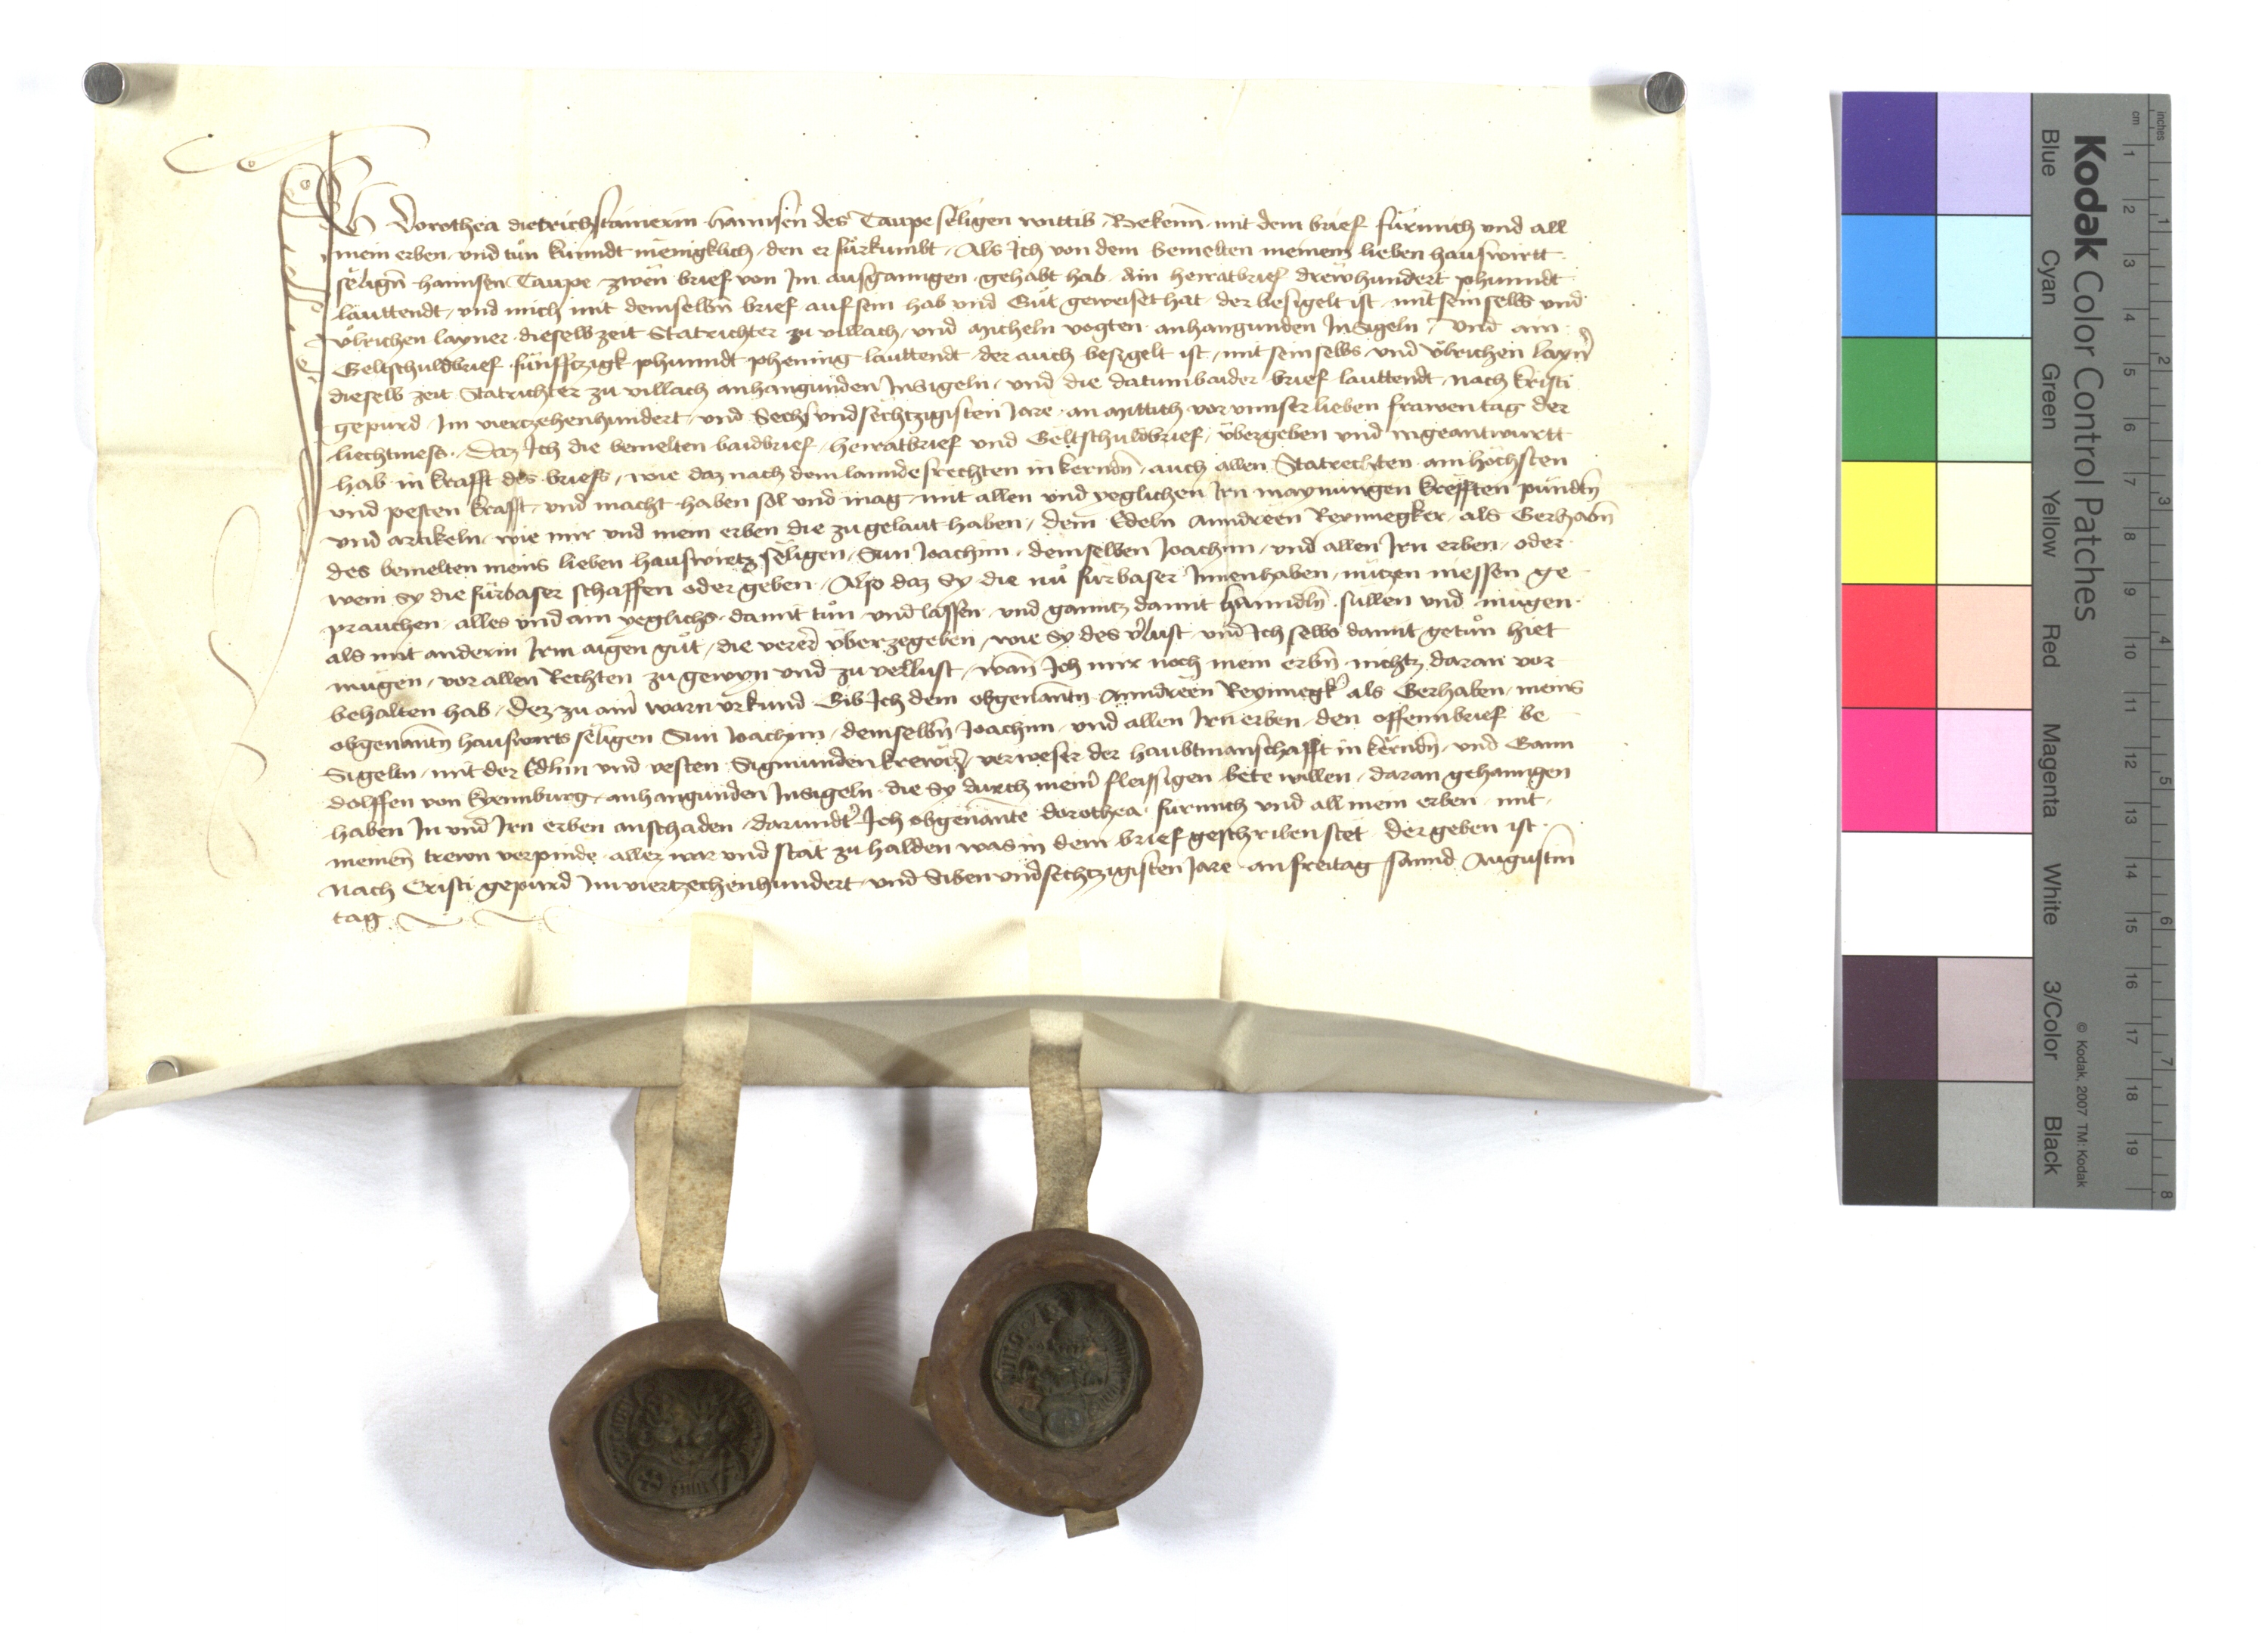 Ich Dorothea dietrichstainerin hannsen des Taupe seligen wittib Bekenn mit dem brief für mich und all
mein erben und tůn kunndt menigklich den er fürkumbt Als Ich von dem bemelten meinem lieben hauswirtt
seligñ hannsen Taupe zwen brief von Im ausganngen gehabt hab ain heiratbrief drewhundert phunndt
lauttendt und mich mit demselbñ brief auf sein hab und Gůt geweiset hat der besigelt ist mit sein selbs und
Ůlrichen layner dieselb zeit Statrichter zu villach und micheln vogten anhangunden Insigeln und ain
Geltschuldbrief fünfftzigk phunndt phening lauttendt der auch besigelt ist mit sein selbs und Ůlrichen layñ
dieselb zeit Statrichter zu villach anhangunden Insigeln und die datum baider brief lauttendt nach kristi
gepurd Im viertzehenhundert und Sechs und sechtzigisten Jare an mittich vor unnser lieben frawen tag der
liechtmess Daz Ich die bemelten baid brief heiratbrief und Geltschuldbrief übergeben und ingeantwurtt
hab in krafft des briefs wie daz nach dem lanndesrechten in kernndñ auch allen Statrechten am höchsten
und pesten krafft und macht haben sol und mag mit allen und yeglichen Irn maynungen krefften pündtñ
und artikeln wie mir und mein erben die zu gelaut haben dem Edeln Anndreen Reynnegker als Gerhabñ
des bemelten meins lieben hauswirtz seligen Sun Joachim demselben Joachim und allen Irn erben oder
wem sy die fürbaser schaffen oder geben Also daz sy die nů fürbaser Innenhaben nützen niessen ge
prauchen alles und ain yeglichs damit tůn und lassen und ganntz damit hanndlñ süllen und mügen
als mit anderm Irm aigen gůt die verer über zegeben wie sy des v̉lust und Ich selbs damit getůn hiet
mügen vor allen Rechten zu gewyn und zu verlust wan Ich mir noch mein erbñ nichtz daran vor
behalten hab Dez zu aim warn urkund Gib Ich dem obgenantñ Anndreen Reyinegk̉ als Gerhaben meins
obgenantñ hauswirts seligen Sun Joachim demselbñ Joachim und allen Irn erben den offenn brief be
Sigeltn mit der Edlnn und vesten Sigmunden krewtz̉ verweser der haubtmanschafft in kerndñ und Gann
dolffen von kyennburg anhangunden Insigeln die sy durch meiñ fleissigen bete willen daran gehanngen
haben In und Irn erben anschaden darundt̉ Ich obgenante dorothea fur mich und all mein erben mit
meinen trewn verpinde aller war und stät zu halden was in dem brief geschriben stet der geben ist
Nach Cristi gepurd Im viertzechenhundert und Siben und sechtzigisten Jare an freitag sannd Augustin
tag
Kodak Color Control Patches
Blue Cyan Green Yellow Red Magenta White 3/Color Black
© Kodak, 2007 TM: Kodak
cm 1 2 3 4 5 6 7 8 9 10 11 12 13 14 15 16 17 18 19
inches 1 2 3 4 5 6 7 8